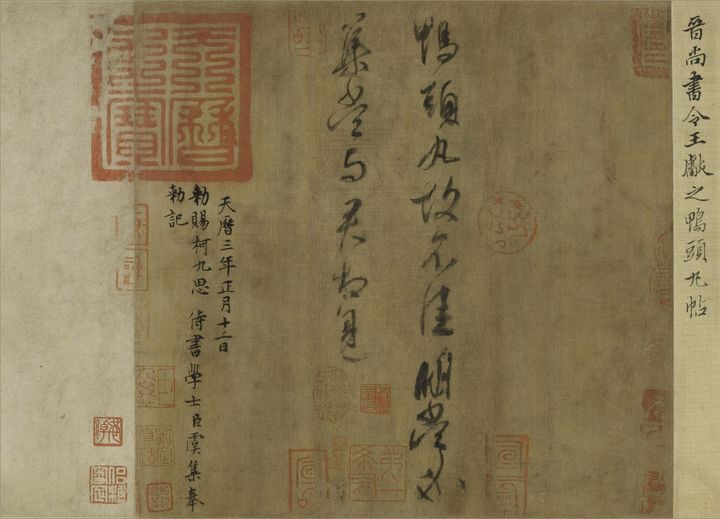 晉尚書令王獻之鴨頭丸帖
鴨頭丸故不佳明當必
集當與君相見
天曆三年正月十二日
勑賜柯九思侍書學士臣虞集奉
勑記
天曆之寶